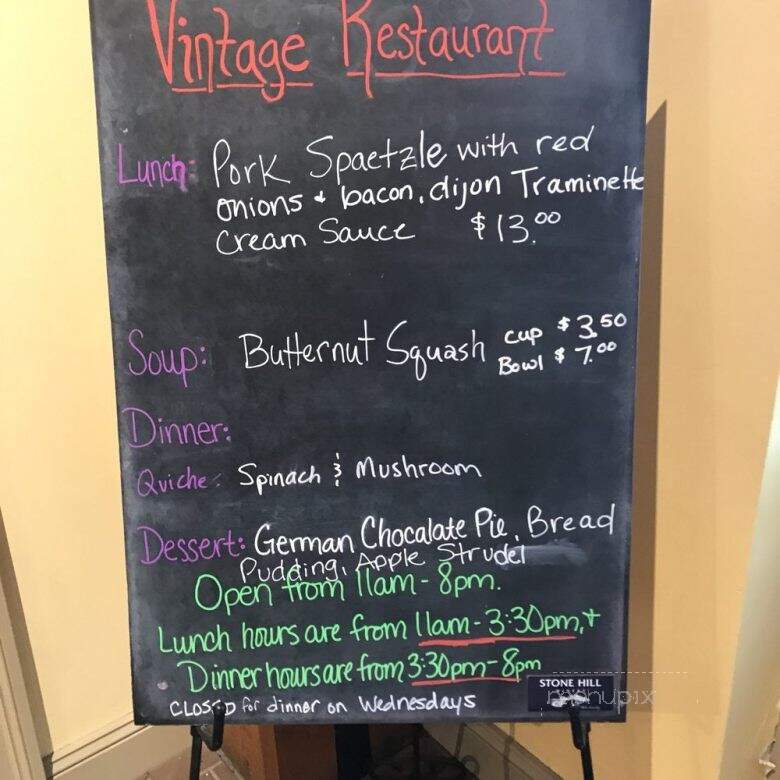 Vintage Restaurant
Lunch: Pork Spaetzle with red
onions & bacon, dijon Traminette
Cream Sauce $13.00
Soup: Butternut Squash cup $3.50
Bowl $7.00
Dinner:
Quiche: Spinach & Mushroom
Dessert: German Chocalate Pie, Bread
Pudding, Apple Strudel
Open from 11am-8pm.
Lunch hours are from 11am-3:30pm,+
Dinner hours are from 3:30pm-8pm
CLOSED for dinner on Wednesdays
STONE HILL
menupix